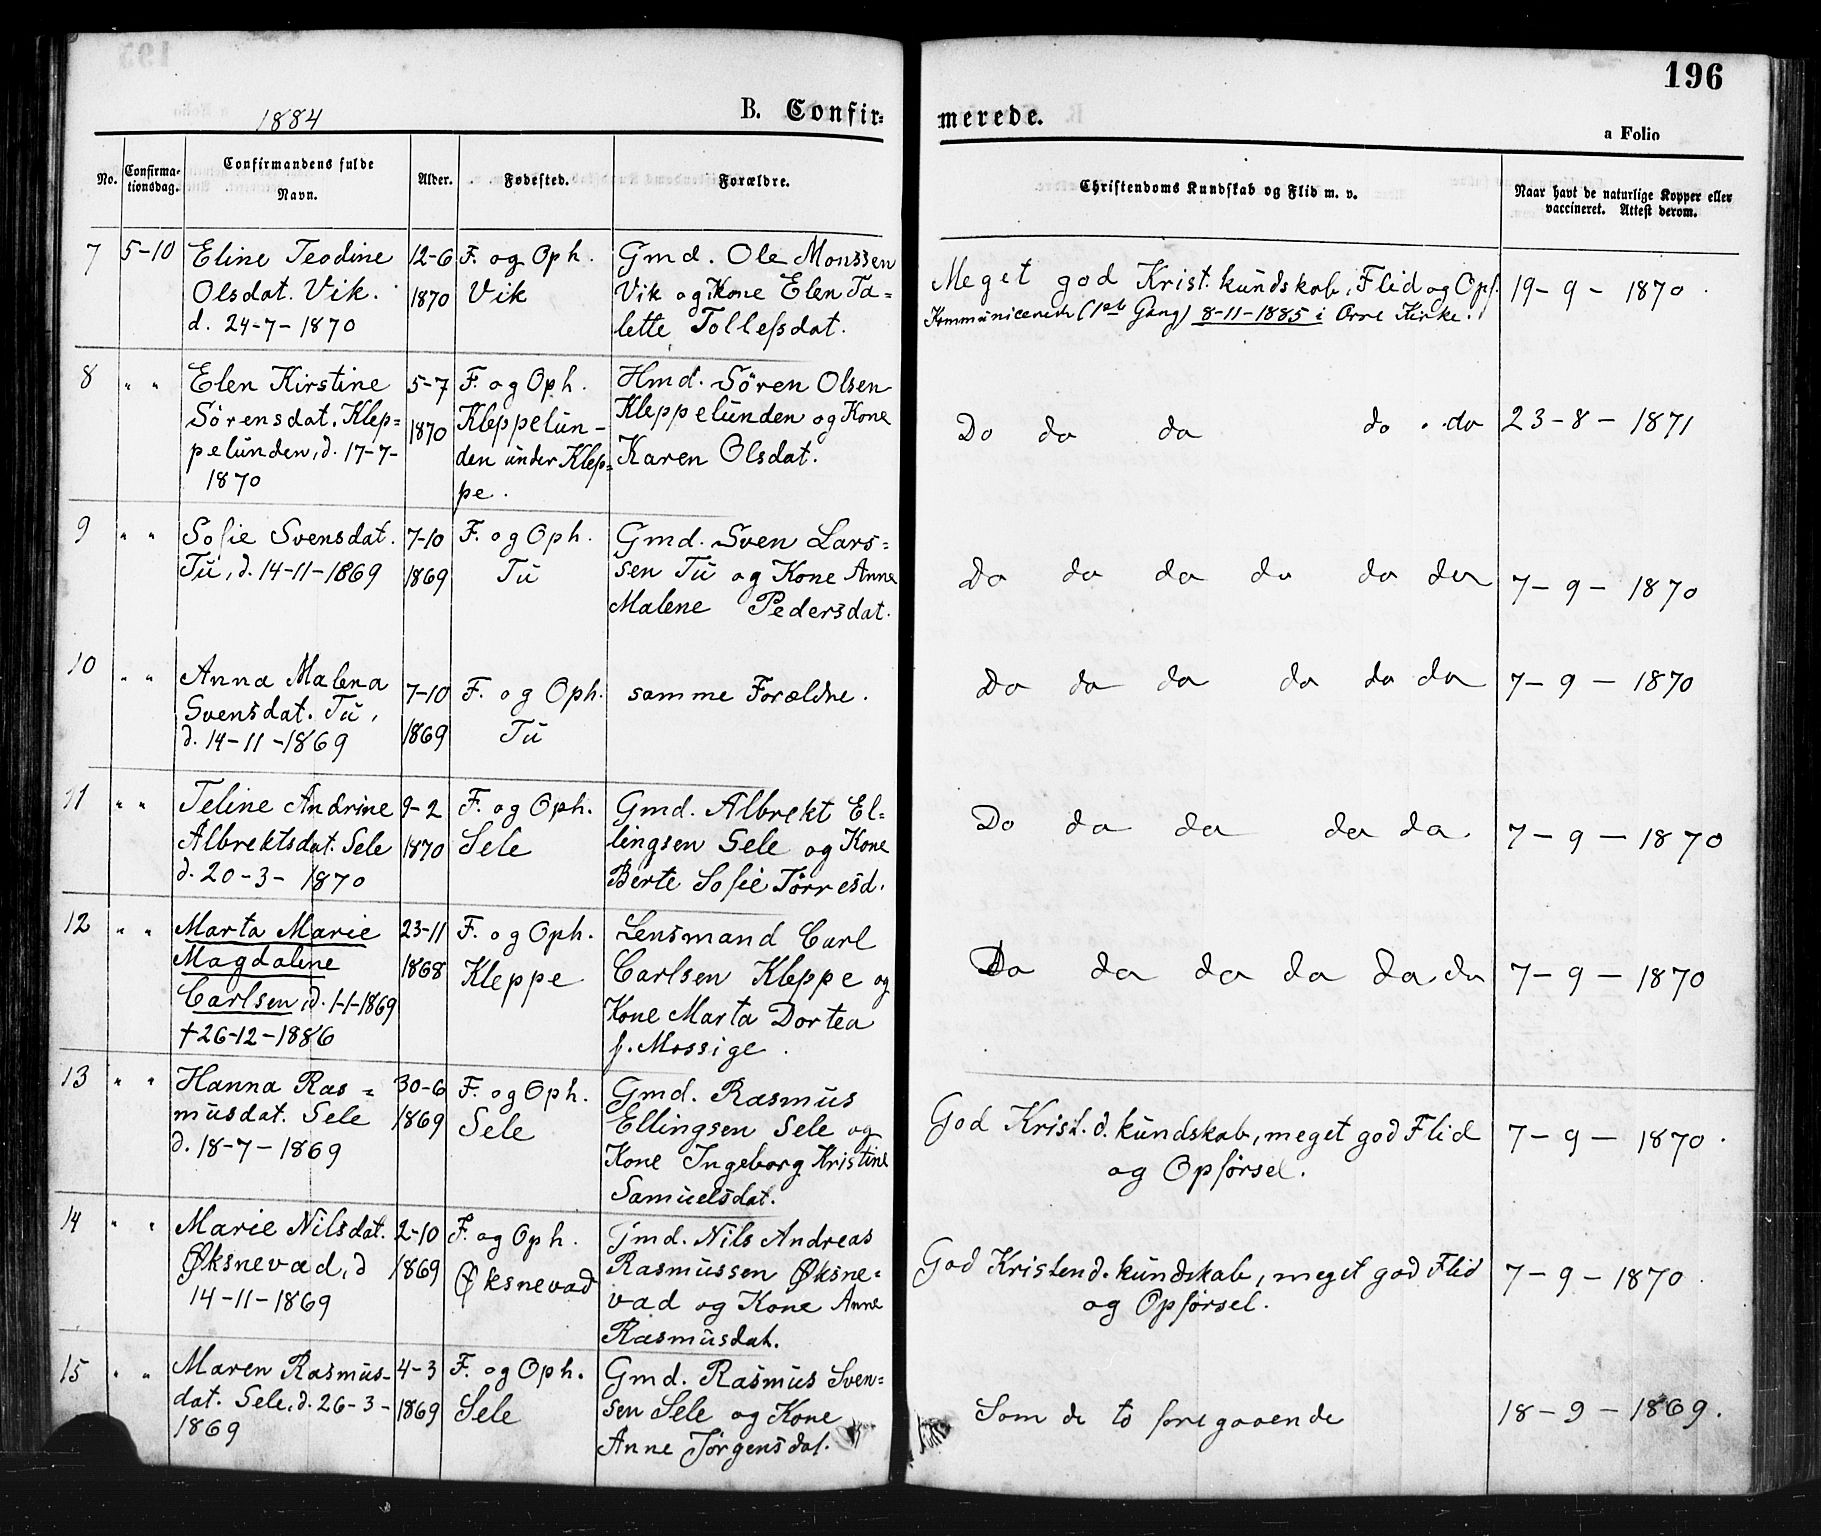 196
1884
B. Confir=
merede.
a Folio
No.
Confirma-
tionsdag.
Confirmandens fulde
Navn.
Alder.
Fødested.
Forældre.
Christendoms Kundskab og Flid m. v.
Naar havt de naturlige Kopper eller
vaccineret. Attest derom.
7 5-10 Eline Teodine
Olsdat. Vik.
d. 24-7-1870
12-6
1870
F. og Oph.
Vik
Gmd. Ole Monssen
Vik og Kone Elen Ta=
lette Tollefsdat.
Meget god Krist. kundskab, Flid og Opf.
Kommunicerede (1ste Gang) 8-11-1885 i Orre Kirke.
19-9-1870.
8 " " Elen Kirstine
Sørensdat. Klep=
pelunden, d. 17-7-
1870
5-7
1870
F. og Oph.
Kleppelun-
den under Klep=
pe.
Hmd. Sören Olsen
Kleppelunden og Kone
Karen Olsdat.
Do do do do do
23-8-1871
9 " " Sofie Svensdat.
Tu, d. 14-11-1869
7-10
1869
F. og Oph.
Tu
Gmd. Sven Lars=
sen Tu og Kone Anne
Malene Pedersdat.
Do do do do do do
7-9-1870
10 " " Anna Malena
Svensdat. Tu,
d. 14-11-1869
7-10
1869
F. og Oph.
Tu
samme Forældre.
Do do do do do do
7-9-1870
11 " " Teline Andrine
Albrektsdat. Sele
d. 20-3-1870
9-2
1870
F. og Oph.
Sele
Gmd. Albrekt El=
lingsen Sele og Kone
Berte Sofie Törresd.
Do do do do do
7-9-1870
12 " " Marta Marie
Magdalene
Carlsen, d. 1-1-1869
†26-12-1886
23-11
1868
F. og Oph.
Kleppe
Lensmand Carl
Carlsen Kleppe og
Kone Marta Dortea
f. Mossige.
Do do do do do do
7-9-1870
13 " " Hanna Ras=
musdat. Sele
d. 18-7-1869
30-6
1869
F. og Oph.
Sele
Gmd. Rasmus
Ellingsen Sele og
Kone Ingeborg Kristine
Samuelsdat.
God Krist. d. kundskab, meget god Flid
og Opförsel.
7-9-1870.
14 " " Marie Nilsdat.
Øksnevad, d
14-11-1869
2-10
1869
F. og Oph.
Øksnevad
Gmd. Nils Andreas
Rasmussen Øksne=
vad og Kone Anne
Rasmusdat.
God Kristend. kundskab, meget god Flid
og Opförsel.
7-9-1870.
15 " " Maren Rasmus-
dat. Sele, d. 26-3-
1869
4-3
1869
F. og Oph.
Sele
Gmd. Rasmus Sven=
sen Sele og Kone
Anne Jörgensdat.
Som de to foregaaende
18-9-1869.